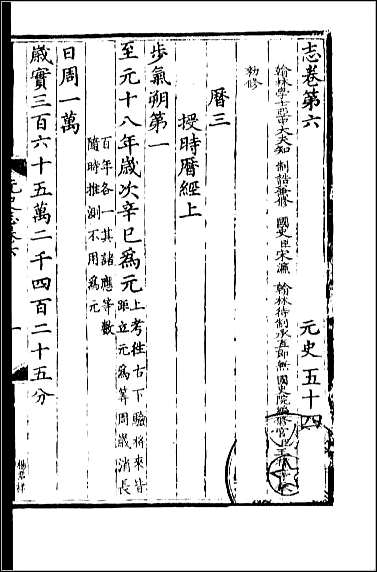 志卷第六 元史五十四
翰林學士亞中大夫知 制誥兼修 國史臣宋濂 翰林待制承直郎兼 國史院編修官臣王禕
勑修
曆三
授時曆經上
步氣朔第一
至元十八年歲次辛巳爲元上考往古下驗將來皆距立元爲算周歲消長
百年各一其諸應等數隨時推測不用爲元
日周一萬
歲實三百六十五萬二千四百二十五分
楊君祥